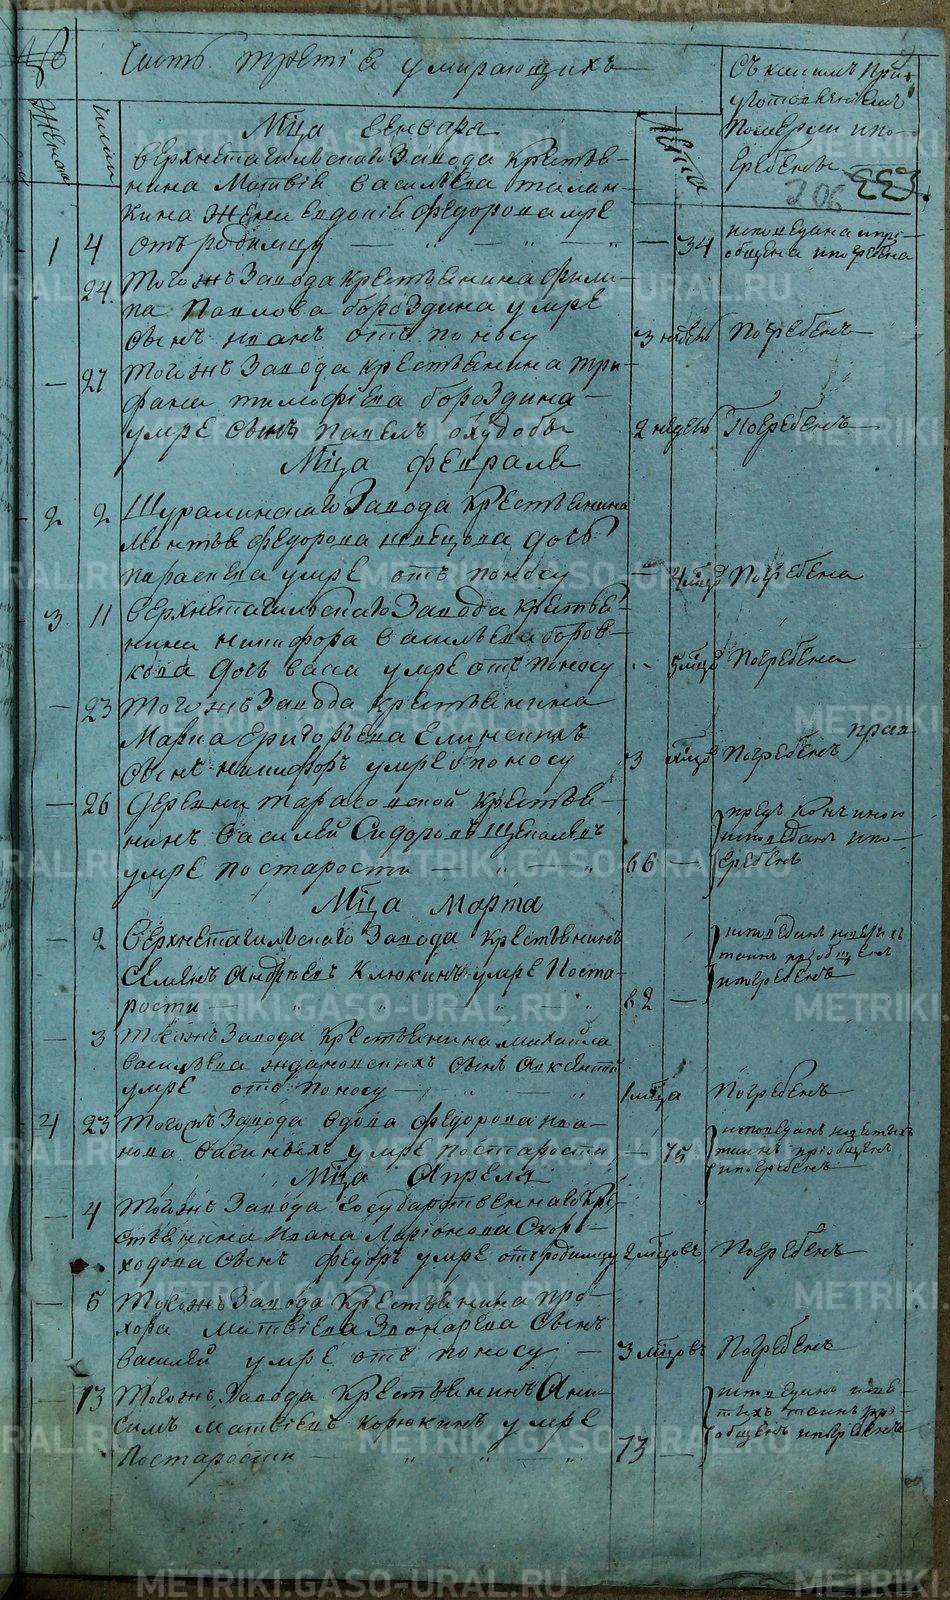 Часть третія умирающихъ
Съ какимъ при-
уготовленіемъ
померли и по-
гребены
306
223.
Женска
числа
Лѣта
Мца Генваря
Верхнетагильскаго Завода крестья-
нина Матвія Васильева Талан-
кина жена Евдокія Федорова умре
1 4 отъ родимцу — 34 исповѣдана и прі-
общена и погребена
24. Тогожъ Завода крестьянина Фили-
па Павлова Бороздина умре
сынъ Иванъ отъ поносу 3 недель Погребенъ
— 27 Тогожъ Завода крестьянина Три-
фана Тимофіева Бороздина
умре сынъ Павелъ охудобы 2 недель Погребенъ
Мца Февраля
2 2 Шуралинскаго Завода крестьянина
Федорова дочь
параскева умре отъ поносу — мцо Погребена
3 11 Верхнетагильскаго Завода крестья-
нина Никифора Васильева Боров-
кова дочь Васа умре отъ поносу 5 мцо Погребена
— 23 Тогожъ Завода крестьянина
Марка Григорьева Елинскихъ
сынъ Никифоръ умре поносу 3 мцо Погребенъ
— 26 Деревни Тарасовской крестья-
нинъ Василей Сидоровъ Щепалевъ
умре по старости 66 — предъ кончиною
исповѣданъ и по-
гребенъ
Мца Марта
— 2 Верхнетагильскаго Завода крестьянинъ
Семенъ Андреевъ Клюкинъ умре по ста-
рости 62 — исповѣданъ
таинъ пріобщенъ
и погребенъ
— 3 Тогожъ Завода крестьянина Михайла
Васильева Ждановскихъ сынъ Авксентій
умре отъ поносу — 1 мца Погребенъ
4 23 Тогожъ Завода вдова Федорова Ива-
нова умре по старости — 75 исповѣданъ
таинъ пріобщенъ
и погребенъ
Мца Апреля
— 4 Тогожъ Завода государственнаго кре-
стьянина Ивана Ларіонова Скоро-
ходова сынъ Федоръ умре отъ родимцу 2 мцовъ Погребенъ
— 5 Тогожъ Завода крестьянина Про-
хора Матвіева Звонарева сынъ
Василей умре отъ поносу — 3 мцовъ Погребенъ
— 13 Тогожъ Завода крестьянинъ Ани-
симъ Матвіевъ Корюкинъ умре
по старости — 73 — исповѣданъ и свя-
тыхъ таинъ прі-
общенъ и погребенъ
METRIKI.GASO-URAL.RU